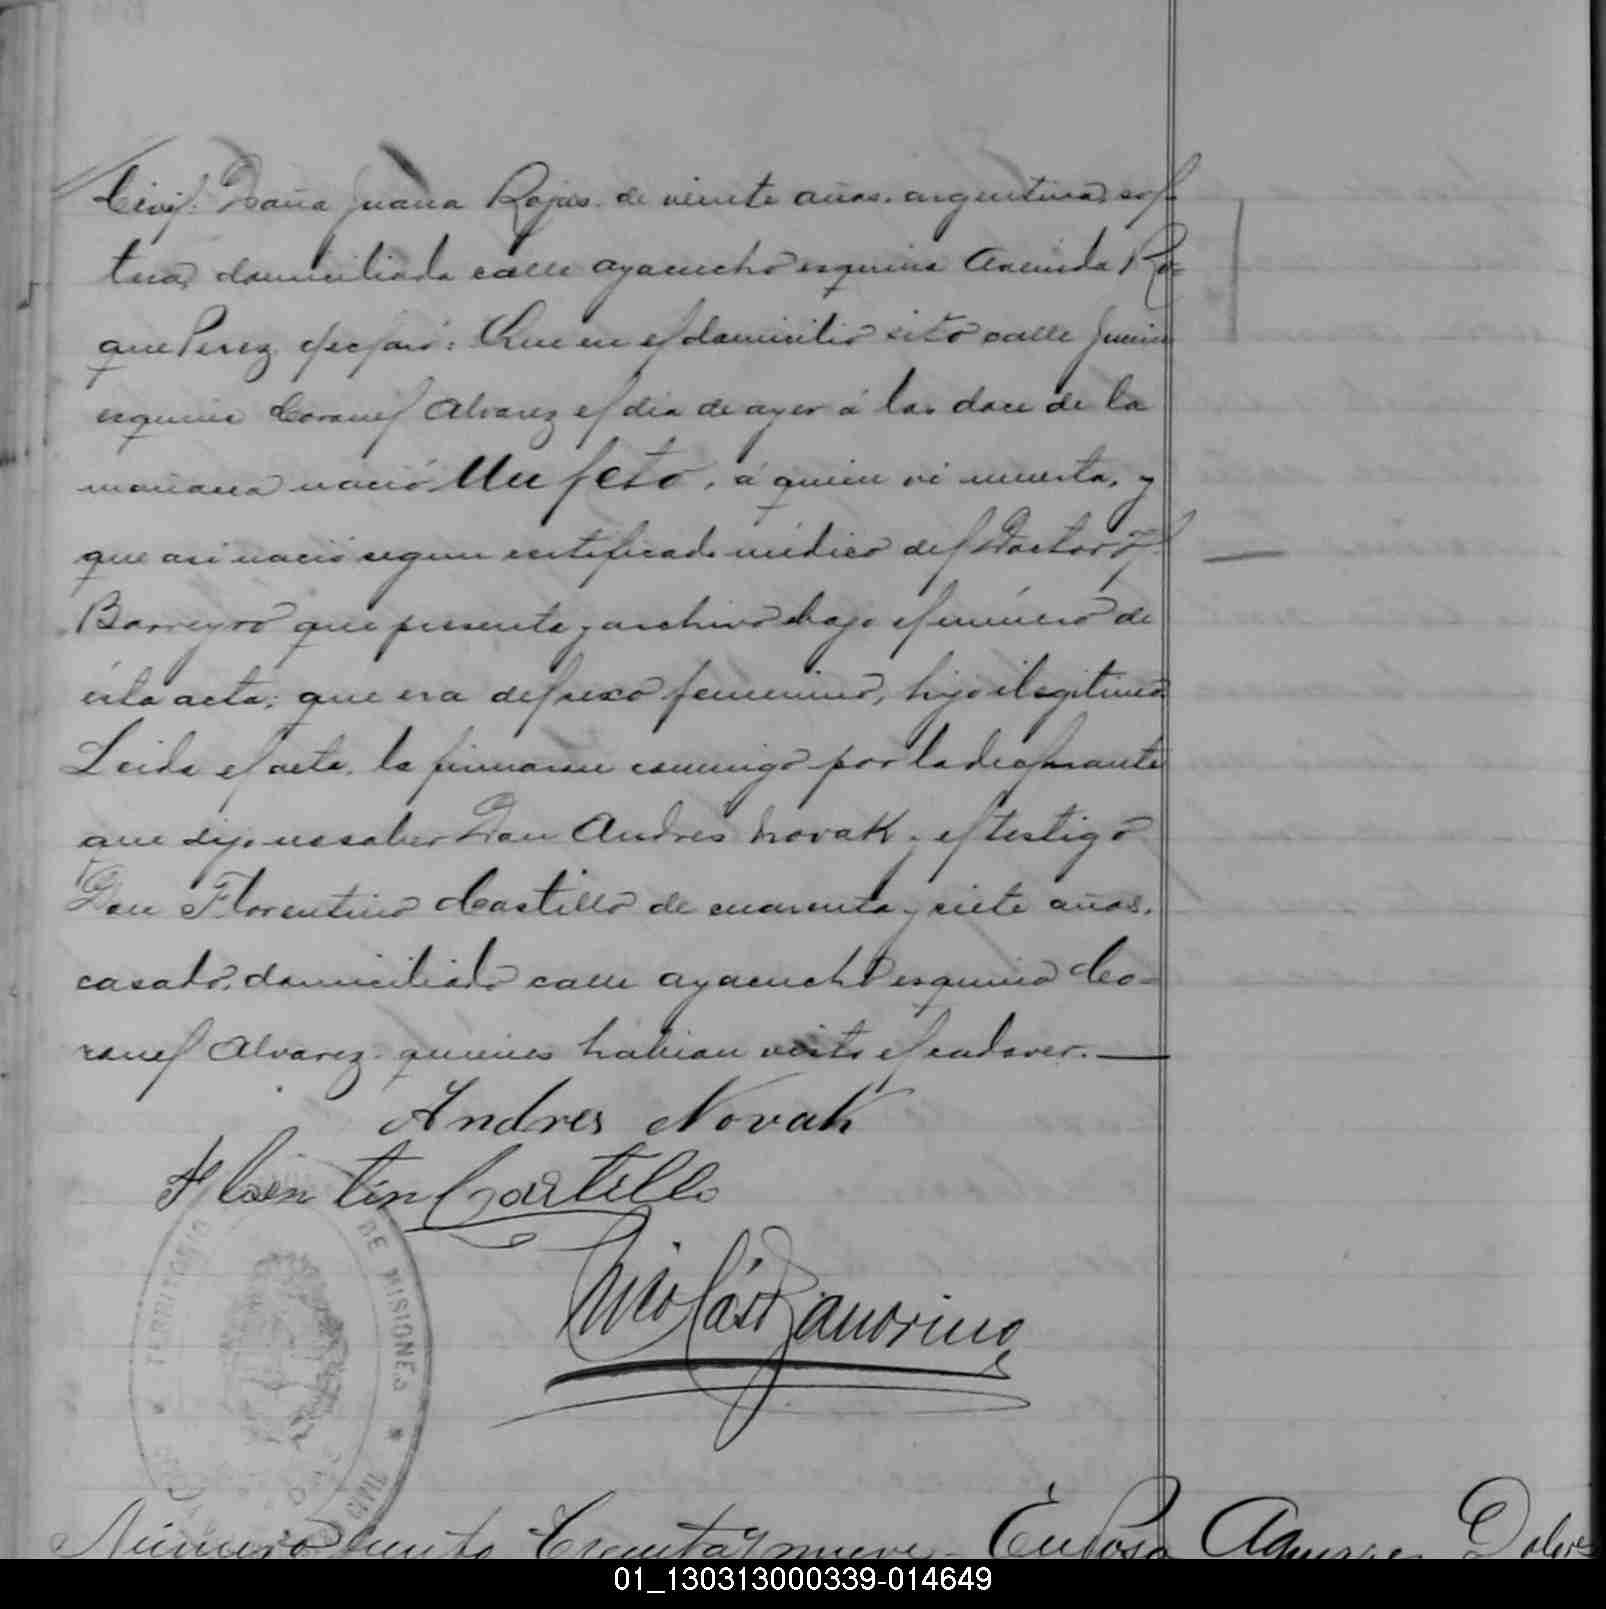 Civil: Doña Juana Rojas de veinte años, argentina, sol-
tera, domiciliada calle ayacucho esquina Avenida Ro-
que Perez declaró: Que en el domicilio sito calle Junin
esquina Coronel Alvarez el dia de ayer á las doce de la
mañana nació Un feto, á quien vi muerta, y
que asi nació segun certificado médico del Doctor
Barreyro que presenta y archivo bajo el número de
ésta acta; que era del sexo femenino, hijo ilegitimo.
Leida el acta, la firmaron conmigo por la declarante
que dijo no saber Don Andres Novak y el testigo
Don Florentino Castillo de cuarenta y siete años,
casado, domiciliado calle ayacucho esquina Co-
ronel Alvarez quienes habian visto el cadaver. —
Andres Novak
Florentin Castillo
Nicolás Zamorino
TERRITORIO DE MISIONES
CIVIL
Número ciento treinta y nueve En Posa
01_130313000339-014649